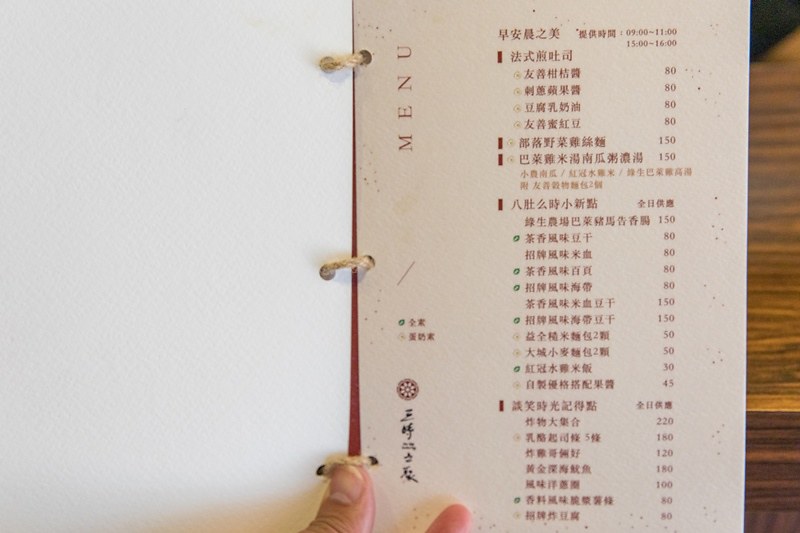 MENU
全素
蛋奶素
早安晨之美 提供時間：09:00~11:00
15:00~16:00
法式煎吐司
友善柑桔醬 80
刺蔥蘋果醬 80
豆腐乳奶油 80
友善蜜紅豆 80
部落野菜雞絲麵 150
巴萊雞米湯南瓜粥濃湯 150
小農南瓜 / 紅冠水雞米 / 綠生巴萊雞高湯
附 友善穀物麵包2個
八肚么時小新點 全日供應
綠生農場巴萊豬馬告香腸 150
茶香風味豆干 80
招牌風味米血 80
茶香風味百頁 80
招牌風味海帶 80
茶香風味米血豆干 150
招牌風味海帶豆干 150
益全糙米麵包2顆 50
大城小麥麵包2顆 50
紅冠水雞米飯 30
自製優格搭配果醬 45
談笑時光記得點 全日供應
炸物大集合 220
乳酪起司條 5條 180
炸雞哥倆好 120
黃金深海魷魚 180
風味洋蔥圈 100
香料風味脆漿薯條 80
招牌炸豆腐 80